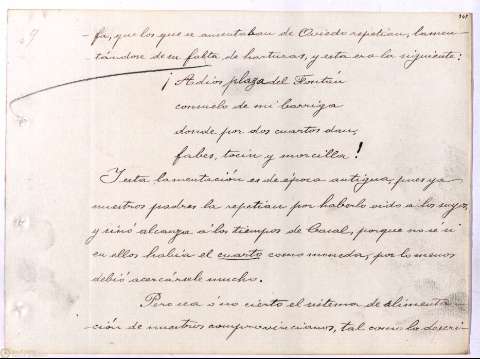 - fa, que los que se ausentaban de Oviedo repetian, lamen-
tándose de su falta de harturas, y esta era la siguiente:
¡Adios plaza del Fontán
consuelo de mi barriga
donde por dos cuartos dan,
fabes, tocin y morcilla!
Y esta lamentación es de época antigua, pues ya
nuestros padres la repetian por haberlo oido a los suyos,
y sinó alcanza a los tiempos de Casal, porque no sé si
en ellos habia el cuarto como moneda, por lo menos
debió acercársele mucho.
Pero sea ó no cierto el sistema de alimenta-
ción de nuestros comprovincianos, tal como lo descri-